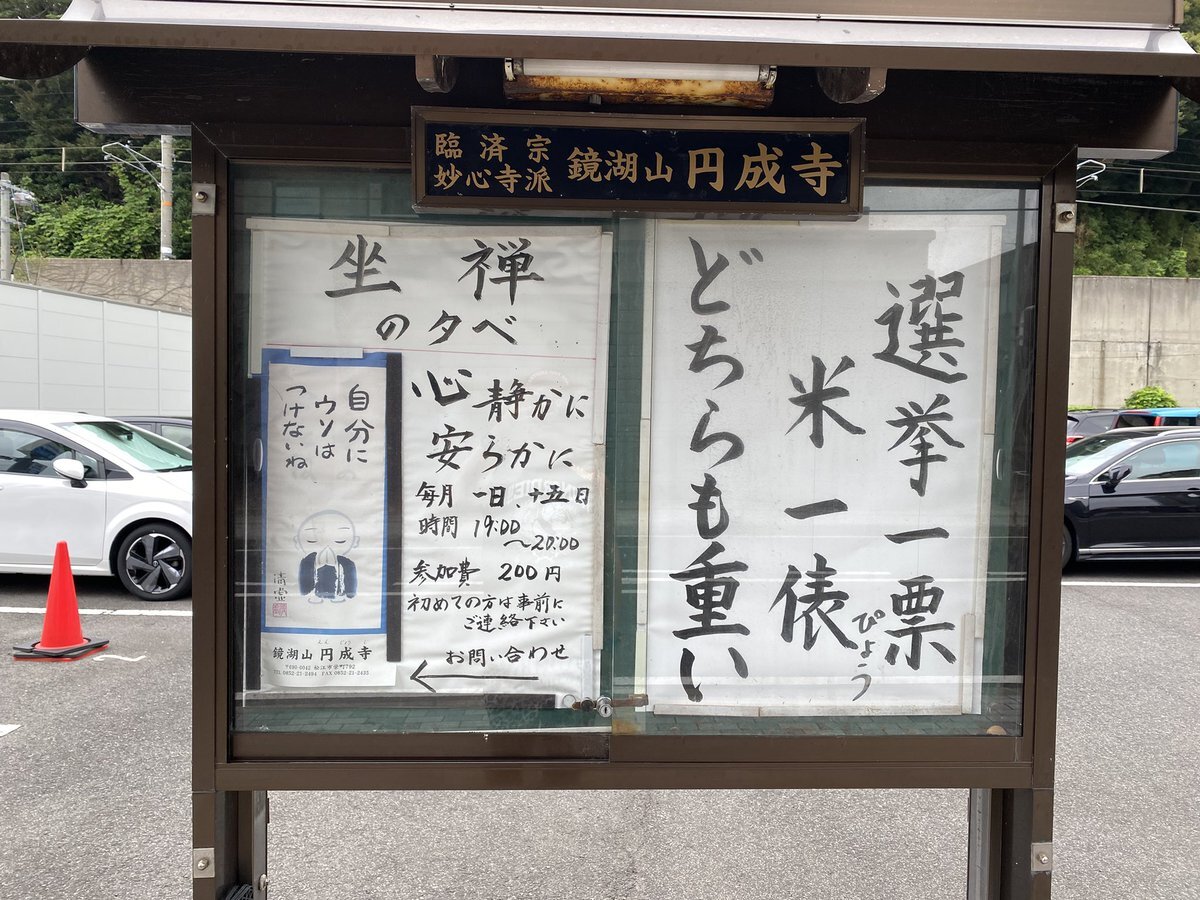 臨済宗
妙心寺派
鏡湖山 円成寺
選挙一票
米一俵
ぴょう
どちらも重い
坐禅
の夕べ
心静かに
安らかに
毎月 一日、十五日
時間 19:00
～20:00
参加費 200円
初めての方は事前に
ご連絡下さい
お問い合わせ
自分に
ウソは
つけないね
鏡湖山 円成寺
えんじょうじ
〒690-0042 松江市栄町792
TEL 0852-21-2494 FAX 0852-21-2435